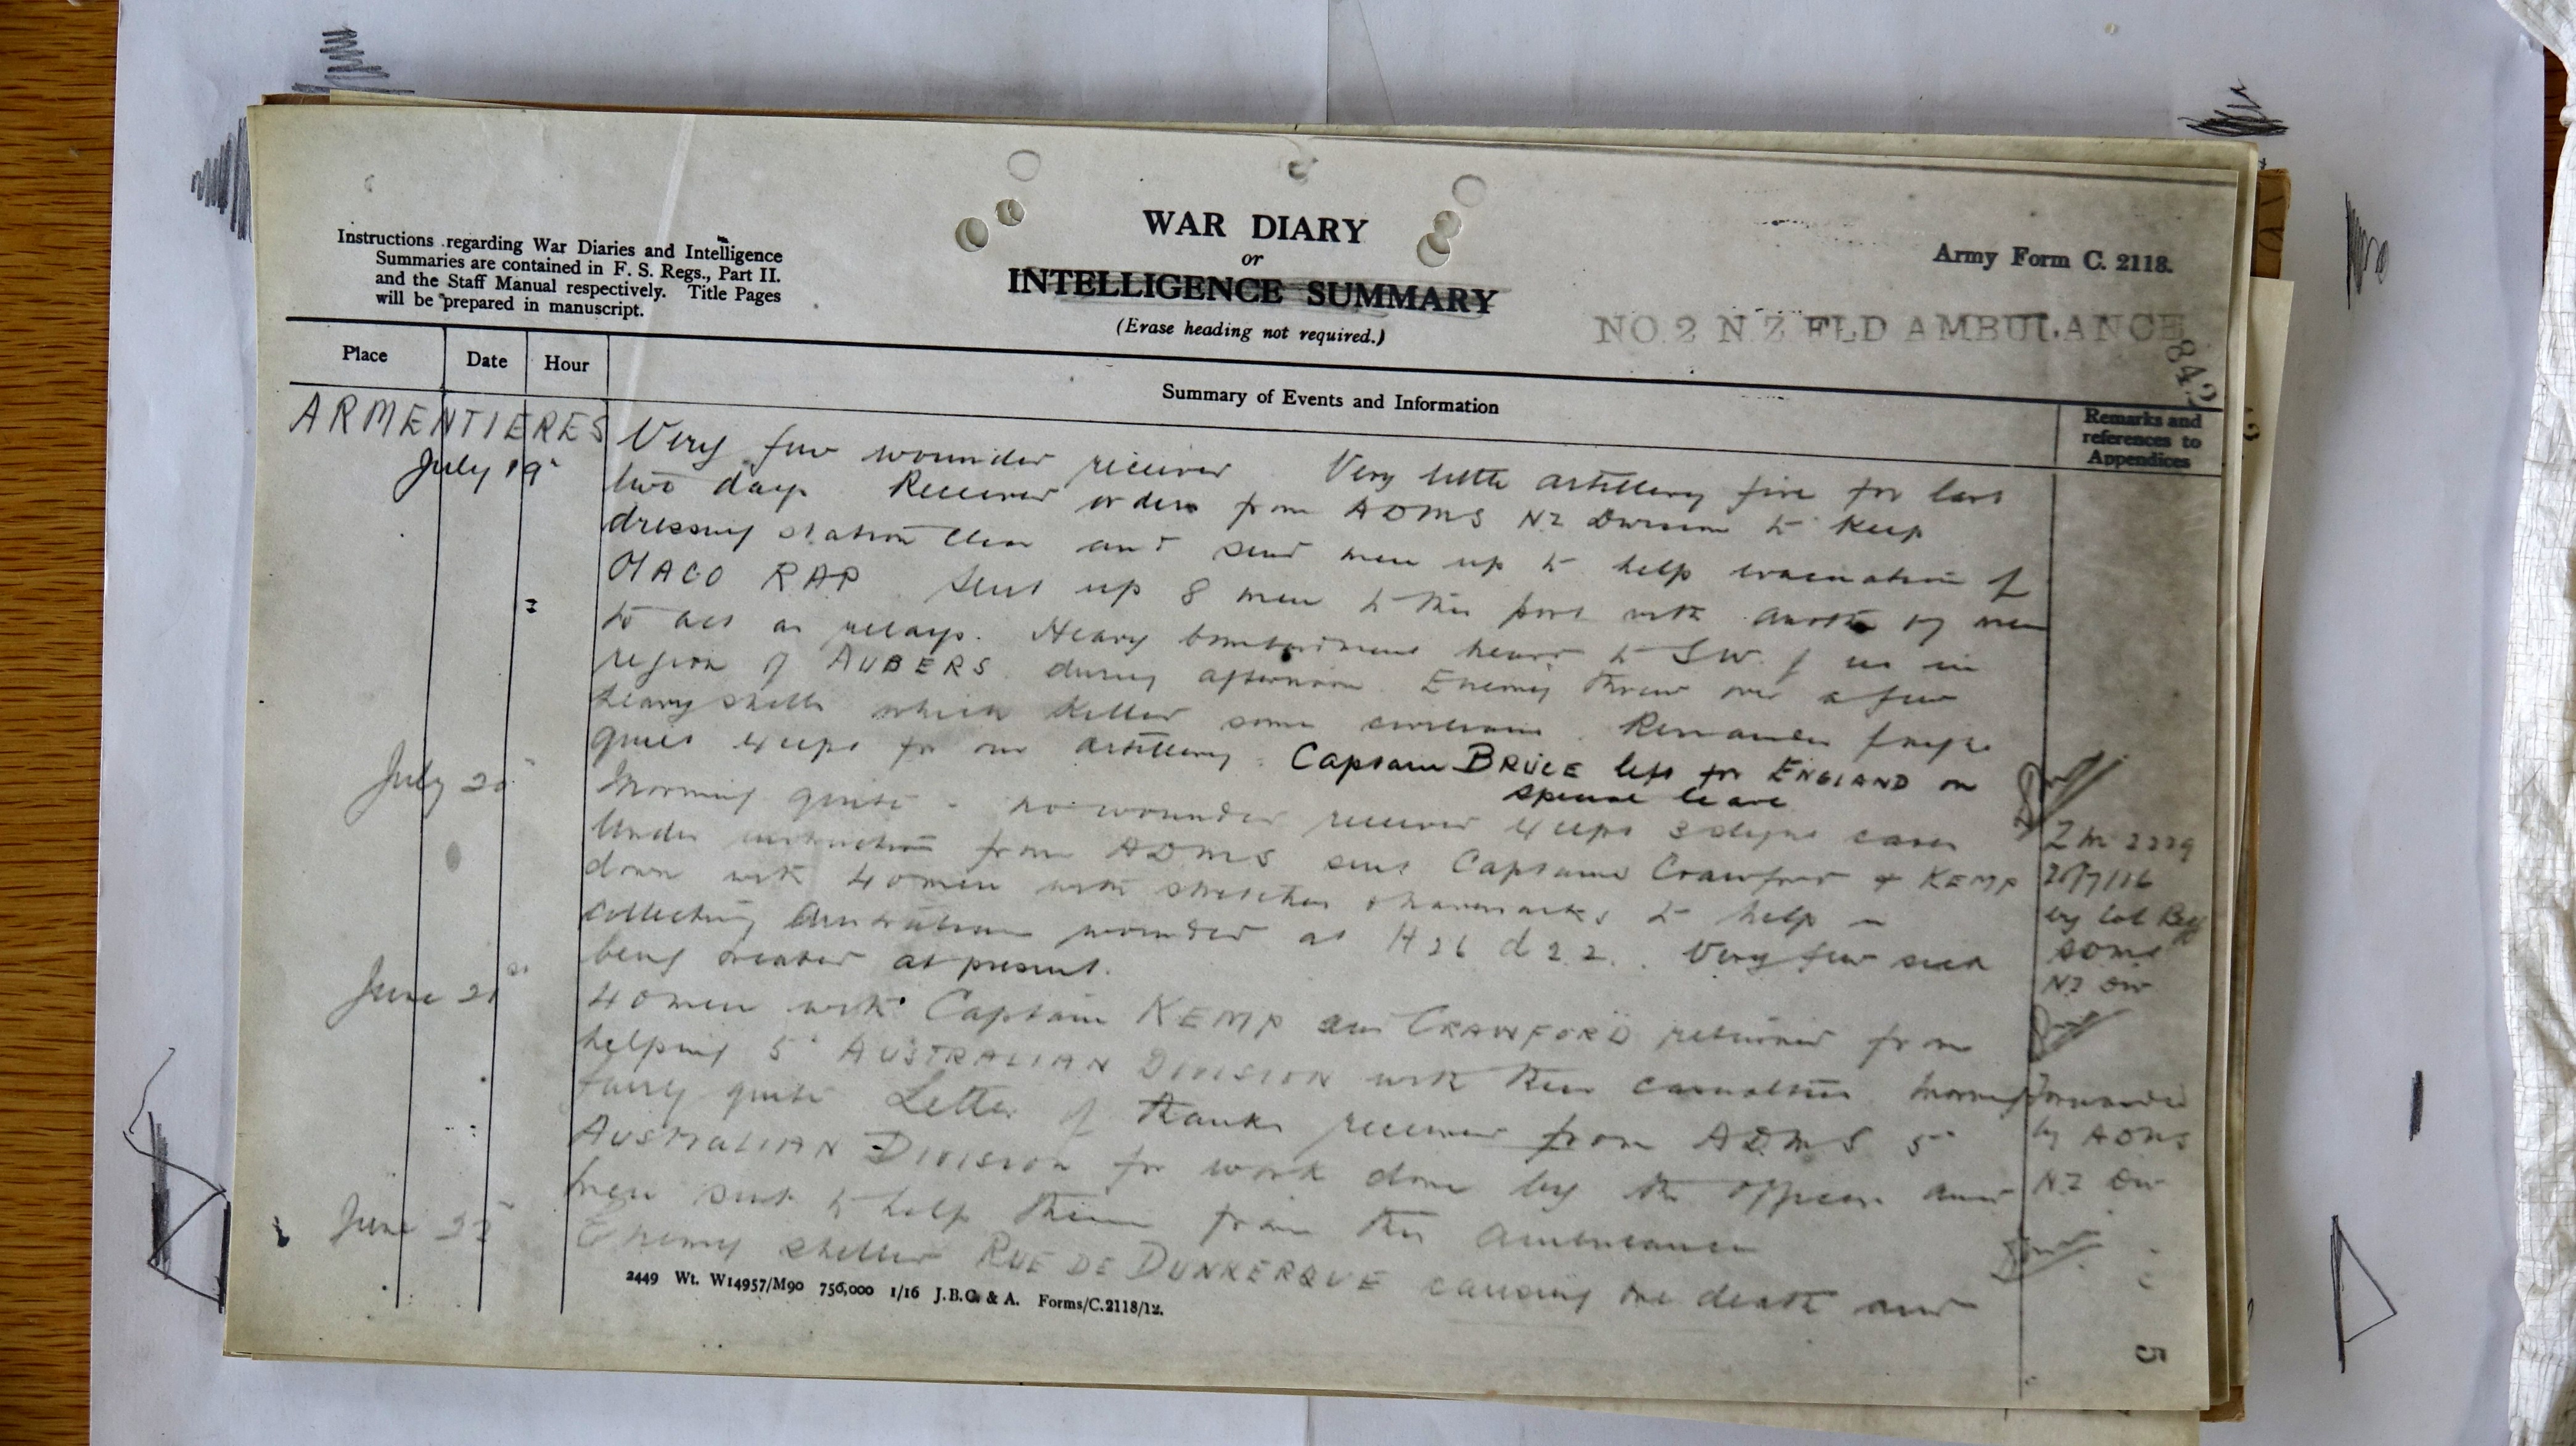 Instructions regarding War Diaries and Intelligence
Summaries are contained in F. S. Regs., Part II.
and the Staff Manual respectively. Title Pages
will be prepared in manuscript.
WAR DIARY
or
INTELLIGENCE SUMMARY
(Erase heading not required.)
Army Form C. 2118.
NO. 2 N Z FLD AMBULANCE
842
Place Date Hour Summary of Events and Information Remarks and
references to
Appendices
ARMENTIERES
July 19
Very few wounded received Very little artillery fire for last
two days Received orders from ADMS NZ Division to keep
dressing station clear and send men up to help evacuation of
RAP Sent up 8 men to this post with another 17 men
to act as relays. Heavy bombardment heard to SW of us in
region of AUBERS during afternoon. Enemy threw over a few
heavy shells which killed some civilians. Remainder
quiet except for our artillery. Captain BRUCE left for ENGLAND on
special leave
July 20
Morning quiet - no wounded received except 3 cases
Under instruction from ADMS sent Captains Crawford & KEMP
down with 40 men with stretchers & haversacks to help in
collecting Australian wounded at H26 d 2.2. Very few sick
being treated at present.
Zm 2229
20/7/16
by Col
ADMS
NZ Div
June 21st
40 men with Captain KEMP and CRAWFORD returned from
helping 5 AUSTRALIAN DIVISION with their casualties. Morning
fairly quiet Letter of thanks received from ADMS 5
AUSTRALIAN DIVISION for work done by the officers and
men sent to help them from this ambulance
Forwarded
by ADMS
NZ Div
June 22
Enemy shelled RUE DE DUNKERQUE causing one death and
2449 Wt. W14957/M90 750,000 1/16 J.B.C. & A. Forms/C.2118/12.
5